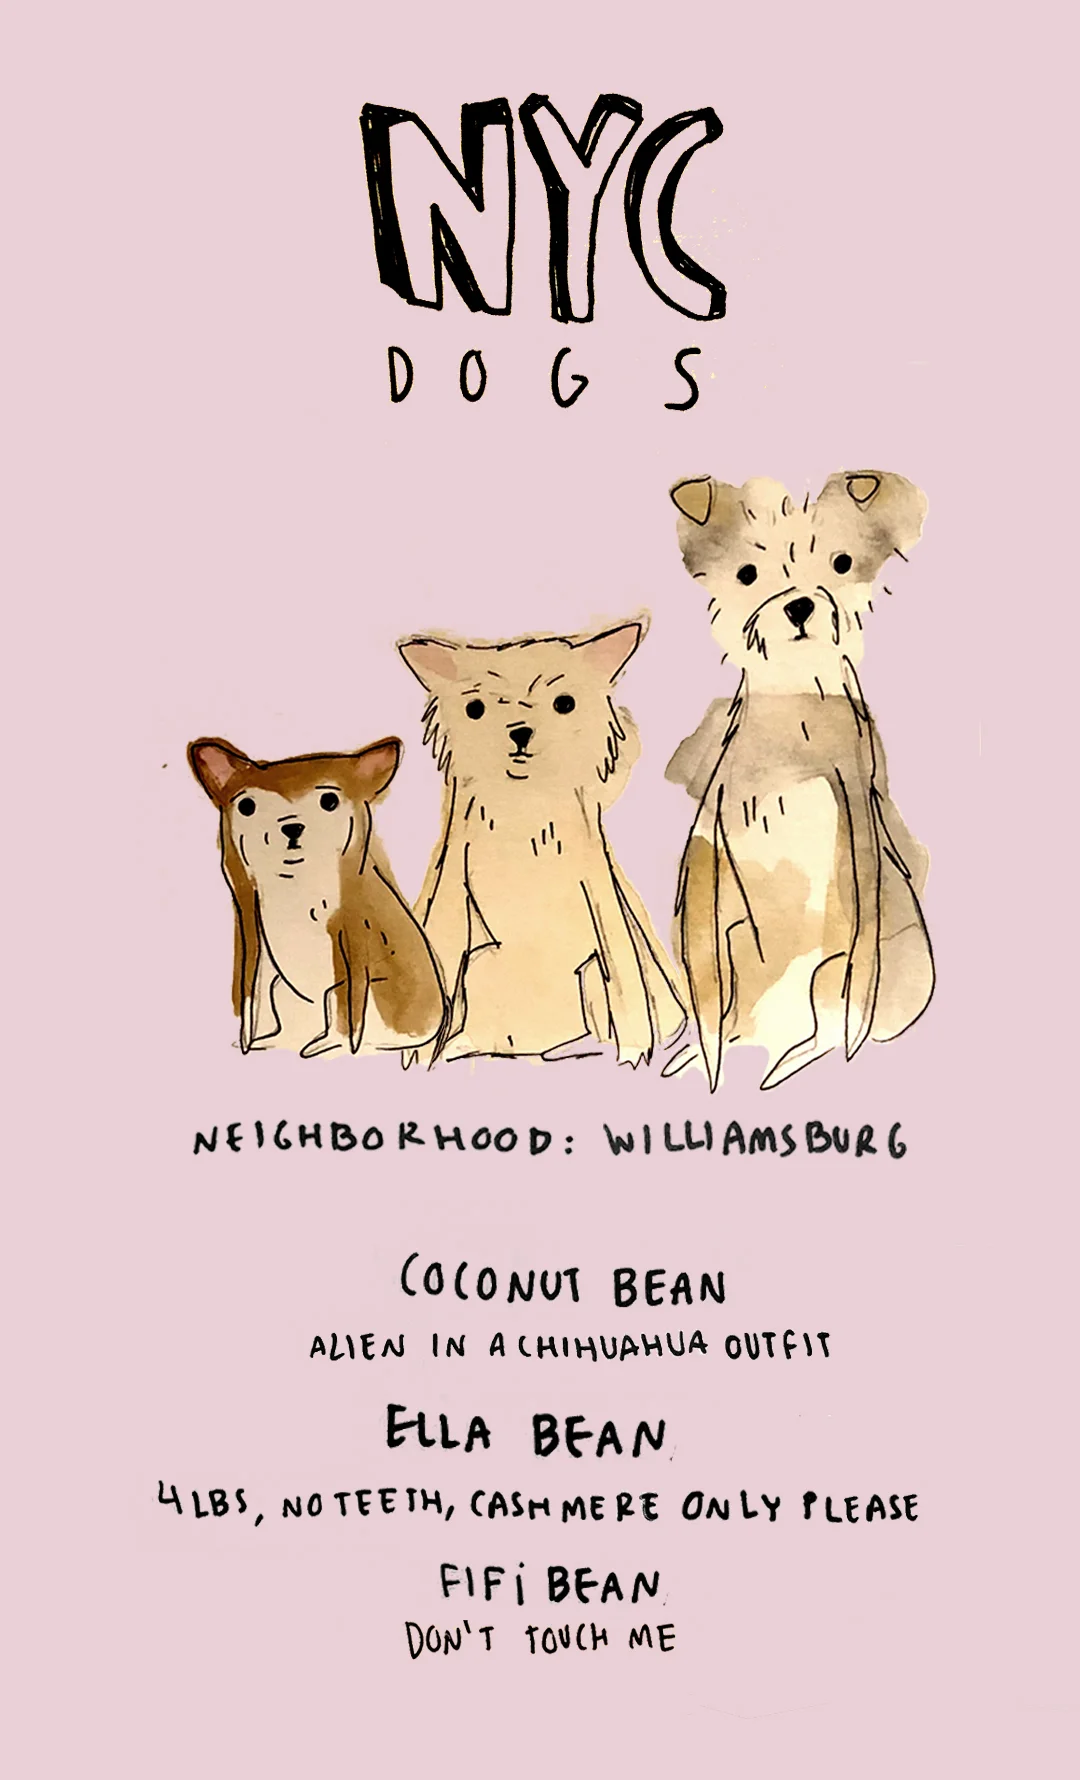 NYC
DOGS
NEIGHBORHOOD: WILLIAMSBURG
COCONUT BEAN
ALIEN IN A CHIHUAHUA OUTFIT
ELLA BEAN
4 LBS, NO TEETH, CASHMERE ONLY PLEASE
FIFi BEAN
DON'T TOUCH ME